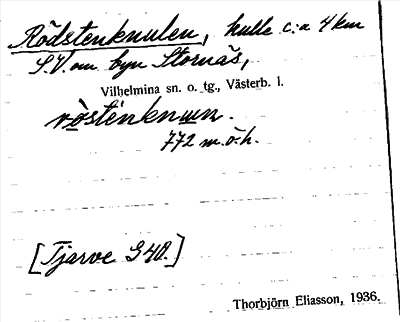 Rödstenknulen, kulle c:a 4 km
S.V. om byn Stornäs,
Vilhelmina sn. o. tg., Västerb. l.
772 m.ö.h.
[Tjarve S 40.]
Thorbjörn Eliasson, 1936.